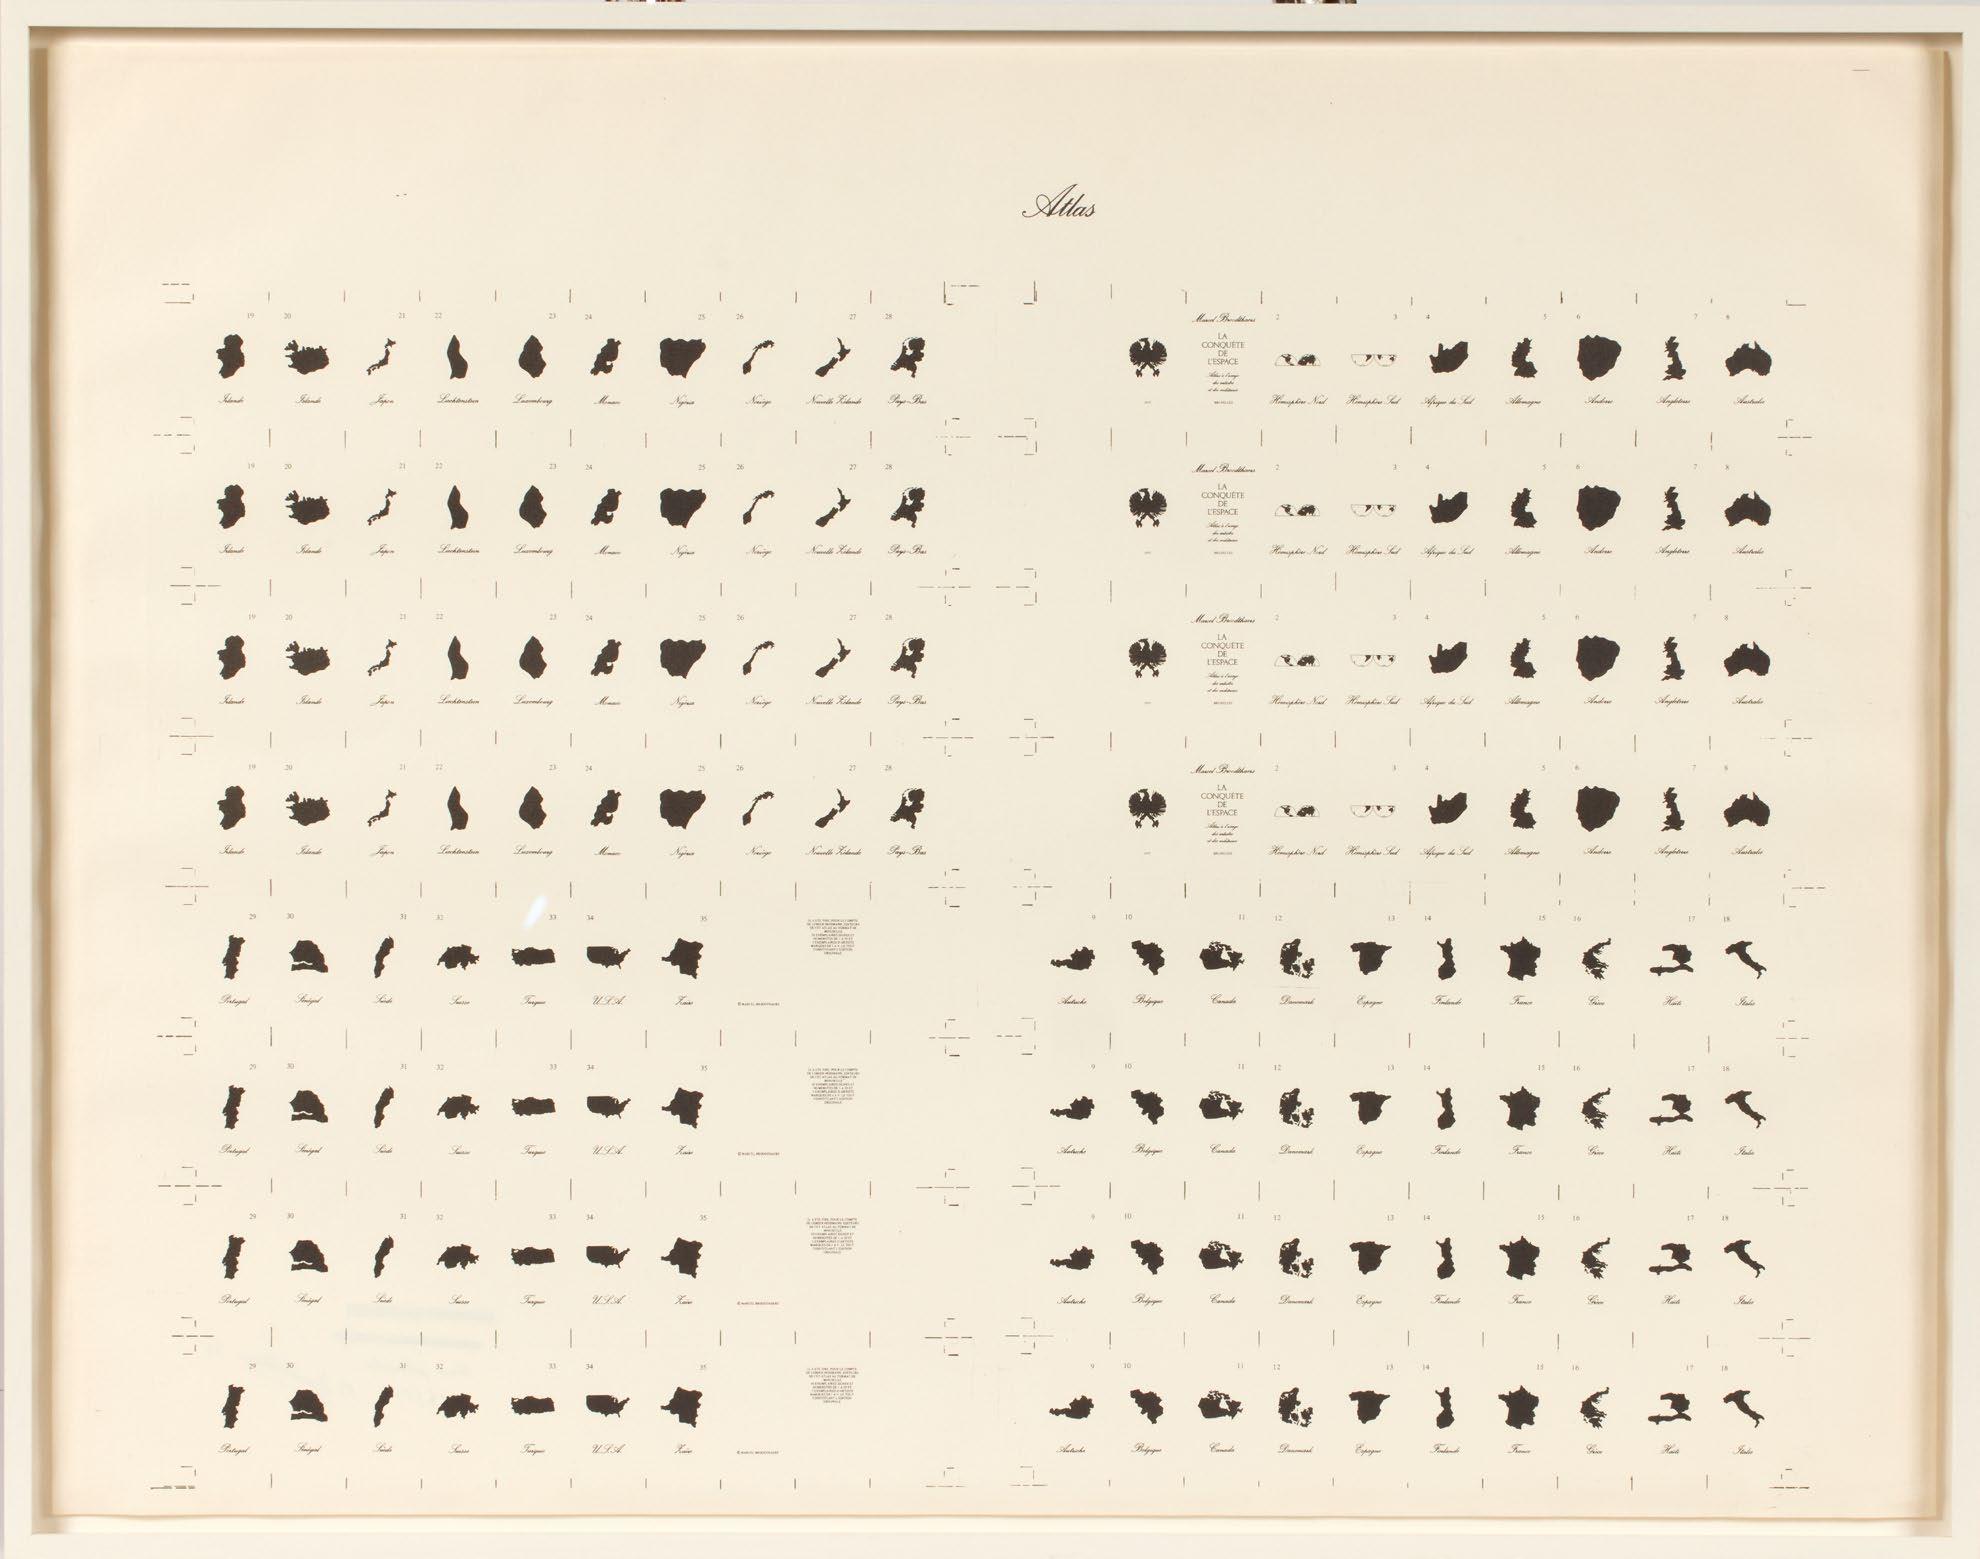 Atlas
19 20 21 22 23 24 25 26 27 28
Marcel Broodthaers
2 3 4 5 6 7 8
LA
CONQUÊTE
DE
L'ESPACE
Atlas à l'usage
des artistes
et des militaires
Irlande Islande Japon Liechtenstein Luxembourg Monaco Nigéria Norvège Nouvelle Zélande Pays-Bas
BRUXELLES Hémisphère Nord Hémisphère Sud Afrique du Sud Allemagne Andorre Angleterre Australie
19 20 21 22 23 24 25 26 27 28
Marcel Broodthaers
2 3 4 5 6 7 8
LA
CONQUÊTE
DE
L'ESPACE
Atlas à l'usage
des artistes
et des militaires
Irlande Islande Japon Liechtenstein Luxembourg Monaco Nigéria Norvège Nouvelle Zélande Pays-Bas
BRUXELLES Hémisphère Nord Hémisphère Sud Afrique du Sud Allemagne Andorre Angleterre Australie
19 20 21 22 23 24 25 26 27 28
Marcel Broodthaers
2 3 4 5 6 7 8
LA
CONQUÊTE
DE
L'ESPACE
Atlas à l'usage
des artistes
et des militaires
Irlande Islande Japon Liechtenstein Luxembourg Monaco Nigéria Norvège Nouvelle Zélande Pays-Bas
BRUXELLES Hémisphère Nord Hémisphère Sud Afrique du Sud Allemagne Andorre Angleterre Australie
19 20 21 22 23 24 25 26 27 28
Marcel Broodthaers
2 3 4 5 6 7 8
LA
CONQUÊTE
DE
L'ESPACE
Atlas à l'usage
des artistes
et des militaires
Irlande Islande Japon Liechtenstein Luxembourg Monaco Nigéria Norvège Nouvelle Zélande Pays-Bas
BRUXELLES Hémisphère Nord Hémisphère Sud Afrique du Sud Allemagne Andorre Angleterre Australie
29 30 31 32 33 34 35
9 10 11 12 13 14 15 16 17 18
IL A ETE TIRE, POUR LE COMPTE
DE CET ATLAS AU FORMAT DE
CONSTITUANT L'EDITION
ORIGINALE
Portugal Sénégal Suède Suisse Turquie U.S.A. Zaïre © MARCEL BROODTHAERS
Autriche Belgique Canada Danemark Espagne Finlande France Grèce Haïti Italie
29 30 31 32 33 34 35
9 10 11 12 13 14 15 16 17 18
IL A ETE TIRE, POUR LE COMPTE
DE CET ATLAS AU FORMAT DE
CONSTITUANT L'EDITION
ORIGINALE
Portugal Sénégal Suède Suisse Turquie U.S.A. Zaïre © MARCEL BROODTHAERS
Autriche Belgique Canada Danemark Espagne Finlande France Grèce Haïti Italie
29 30 31 32 33 34 35
9 10 11 12 13 14 15 16 17 18
IL A ETE TIRE, POUR LE COMPTE
DE CET ATLAS AU FORMAT DE
CONSTITUANT L'EDITION
ORIGINALE
Portugal Sénégal Suède Suisse Turquie U.S.A. Zaïre © MARCEL BROODTHAERS
Autriche Belgique Canada Danemark Espagne Finlande France Grèce Haïti Italie
29 30 31 32 33 34 35
9 10 11 12 13 14 15 16 17 18
IL A ETE TIRE, POUR LE COMPTE
DE CET ATLAS AU FORMAT DE
CONSTITUANT L'EDITION
ORIGINALE
Portugal Sénégal Suède Suisse Turquie U.S.A. Zaïre © MARCEL BROODTHAERS
Autriche Belgique Canada Danemark Espagne Finlande France Grèce Haïti Italie